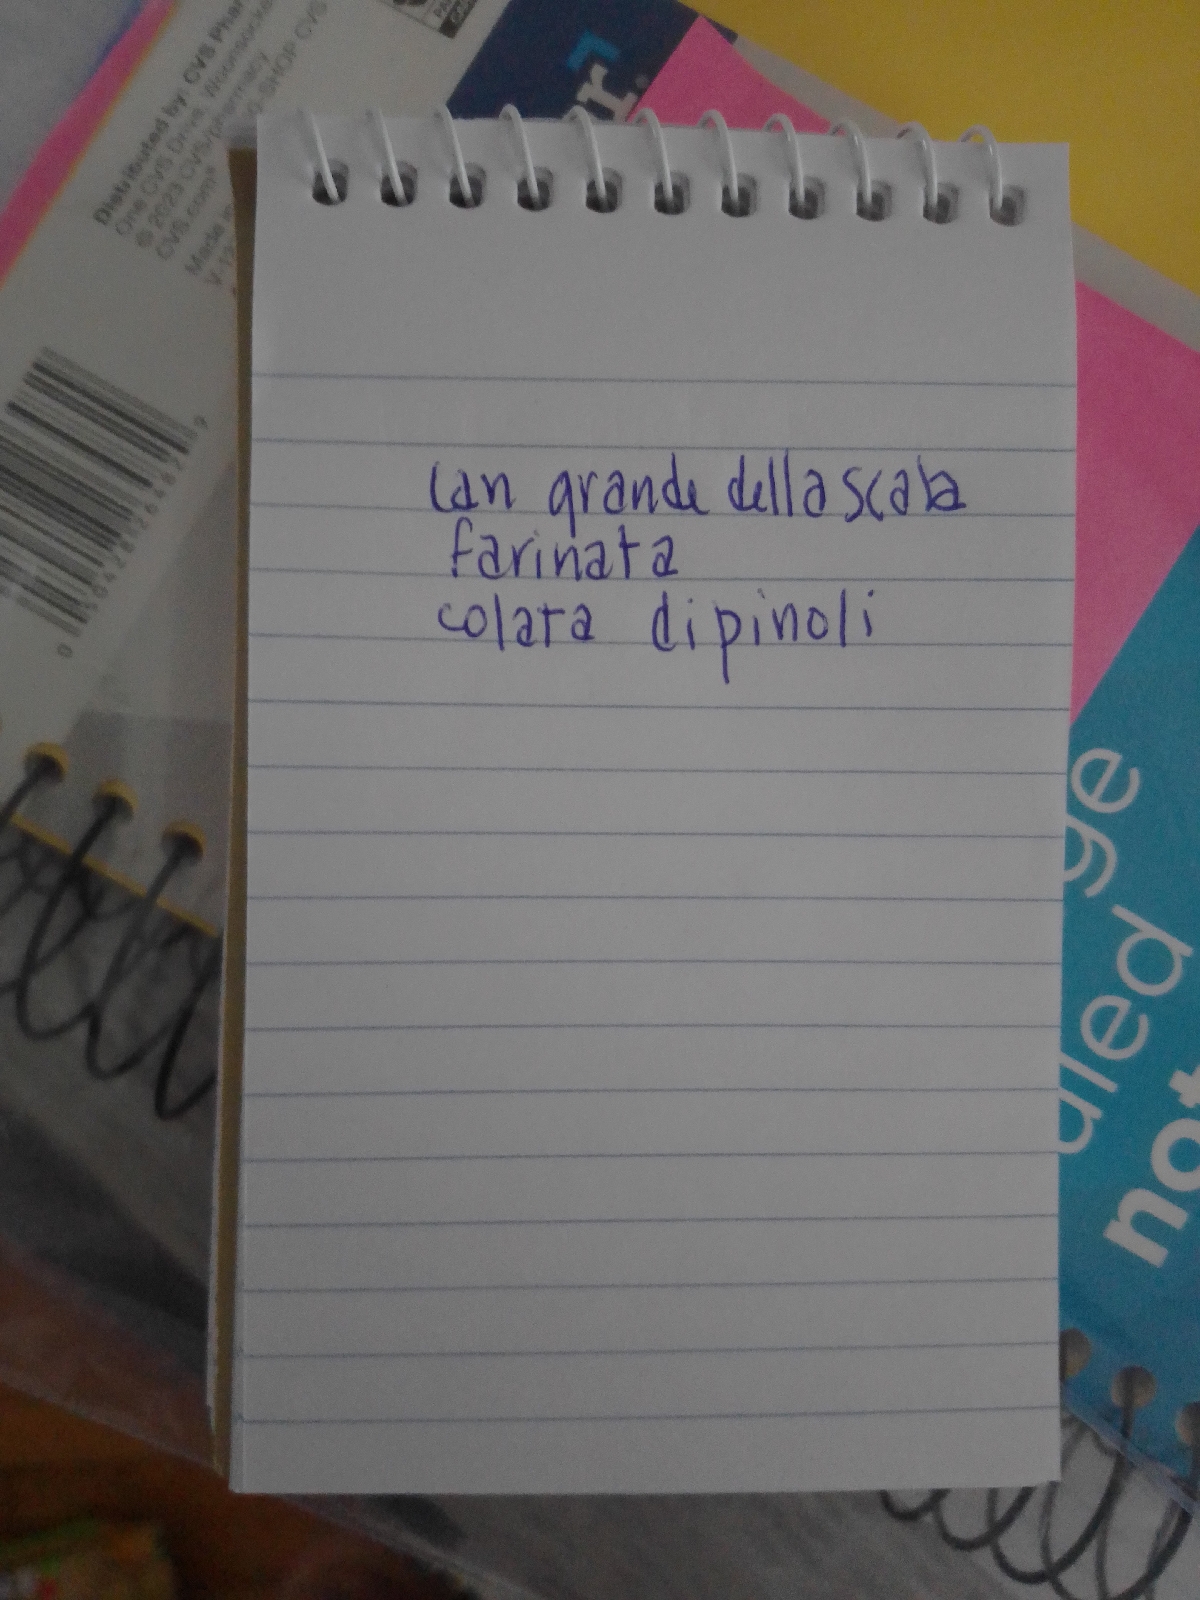 Distributed by: CVS Phar
One CVS Drive, Woonsocke
© 2023 CVS/pharmacy
CVS.com® SHOP CVS
Made in
er.
can grande della scala
farinata
colata di pinoli
ge
uled
not